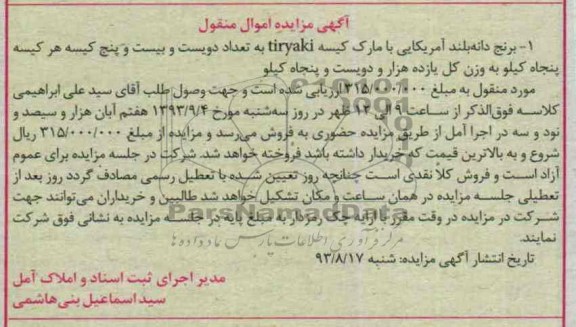 آگهی مزایده اموال منقول
۱- برنج دانه‌بلند آمریکایی با مارک کیسه tiryaki به تعداد دویست و بیست و پنج کیسه هر کیسه
پنجاه کیلو به وزن کل یازده هزار و دویست و پنجاه کیلو
مورد منقول به مبلغ ۳۱۵/۰۰۰/۰۰۰ ارزیابی شده است و جهت وصول طلب آقای سید علی ابراهیمی
کلاسه فوق‌الذکر از ساعت ۹ الی ۱۲ ظهر در روز سه‌شنبه مورخ ۱۳۹۳/۹/۴ هفتم آبان هزار و سیصد و
نود و سه در اجرا آمل از طریق مزایده حضوری به فروش می‌رسد و مزایده از مبلغ ۳۱۵/۰۰۰/۰۰۰ ریال
شروع و به بالاترین قیمت که خریدار داشته باشد فروخته خواهد شد. شرکت در جلسه مزایده برای عموم
آزاد است و فروش کلا نقدی است چنانچه روز تعیین شده با تعطیل رسمی مصادف گردد روز بعد از
تعطیلی جلسه مزایده در همان ساعت و مکان تشکیل خواهد شد طالبین و خریداران می‌توانند جهت
شرکت در مزایده در وقت مقرر با ارایه چک رمزدار با مبلغ پایه در جلسه مزایده به نشانی فوق شرکت
نمایند.
تاریخ انتشار آگهی مزایده: شنبه ۹۳/۸/۱۷
مدیر اجرای ثبت اسناد و املاک آمل
سید اسماعیل بنی‌هاشمی
ParsNamadData
مرکز فرآوری اطلاعات پارس نماد داده‌ها